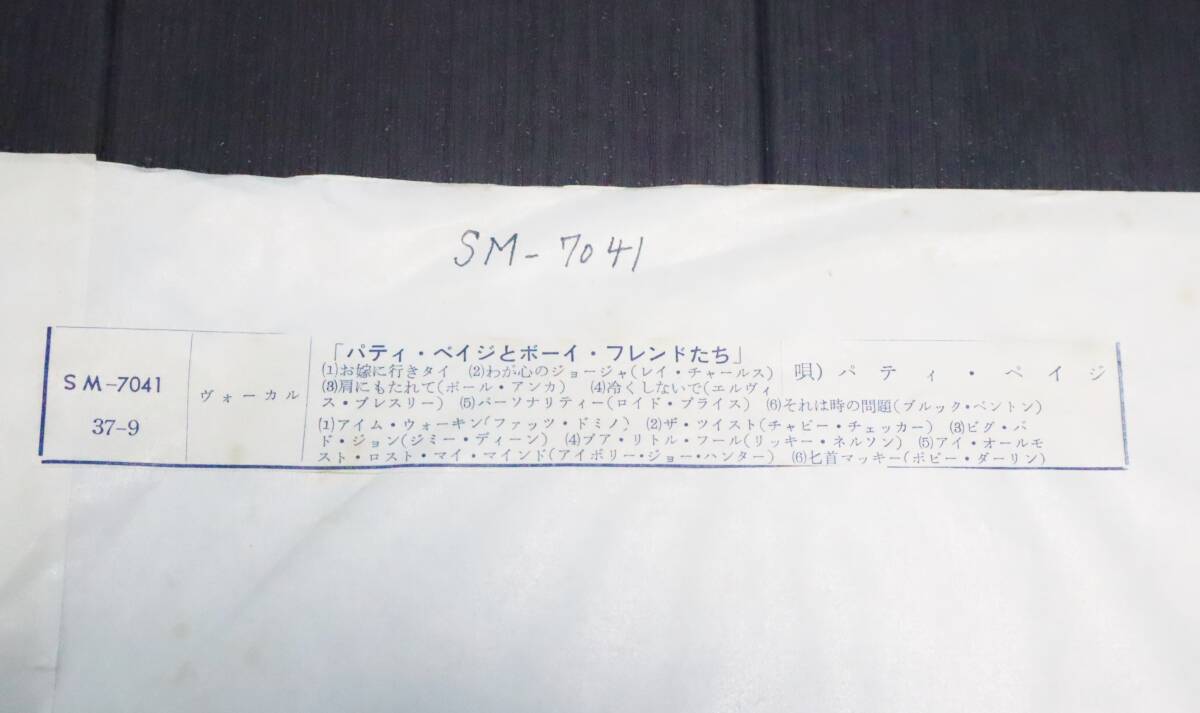 SM-7041
「パティ・ペイジとボーイ・フレンドたち」
SM-7041
37-9
ヴォーカル
(1)お嫁に行きタイ (2)わが心のジョージャ(レイ・チャールス)
(3)肩にもたれて(ポール・アンカ) (4)冷くしないで(エルヴィ
ス・プレスリー) (5)パーソナリティー(ロイド・プライス) (6)それは時の問題(ブルック・ベントン)
唄) パティ・ペイジ
(1)アイム・ウォーキン(ファッツ・ドミノ) (2)ザ・ツイスト(チャビー・チェッカー) (3)ビグ・バ
ド・ジョン(ジミー・ディーン) (4)プア・リトル・フール(リッキー・ネルソン) (5)アイ・オールモ
スト・ロスト・マイ・マインド(アイボリー・ジョー・ハンター) (6)匕首マッキー(ボビー・ダーリン)